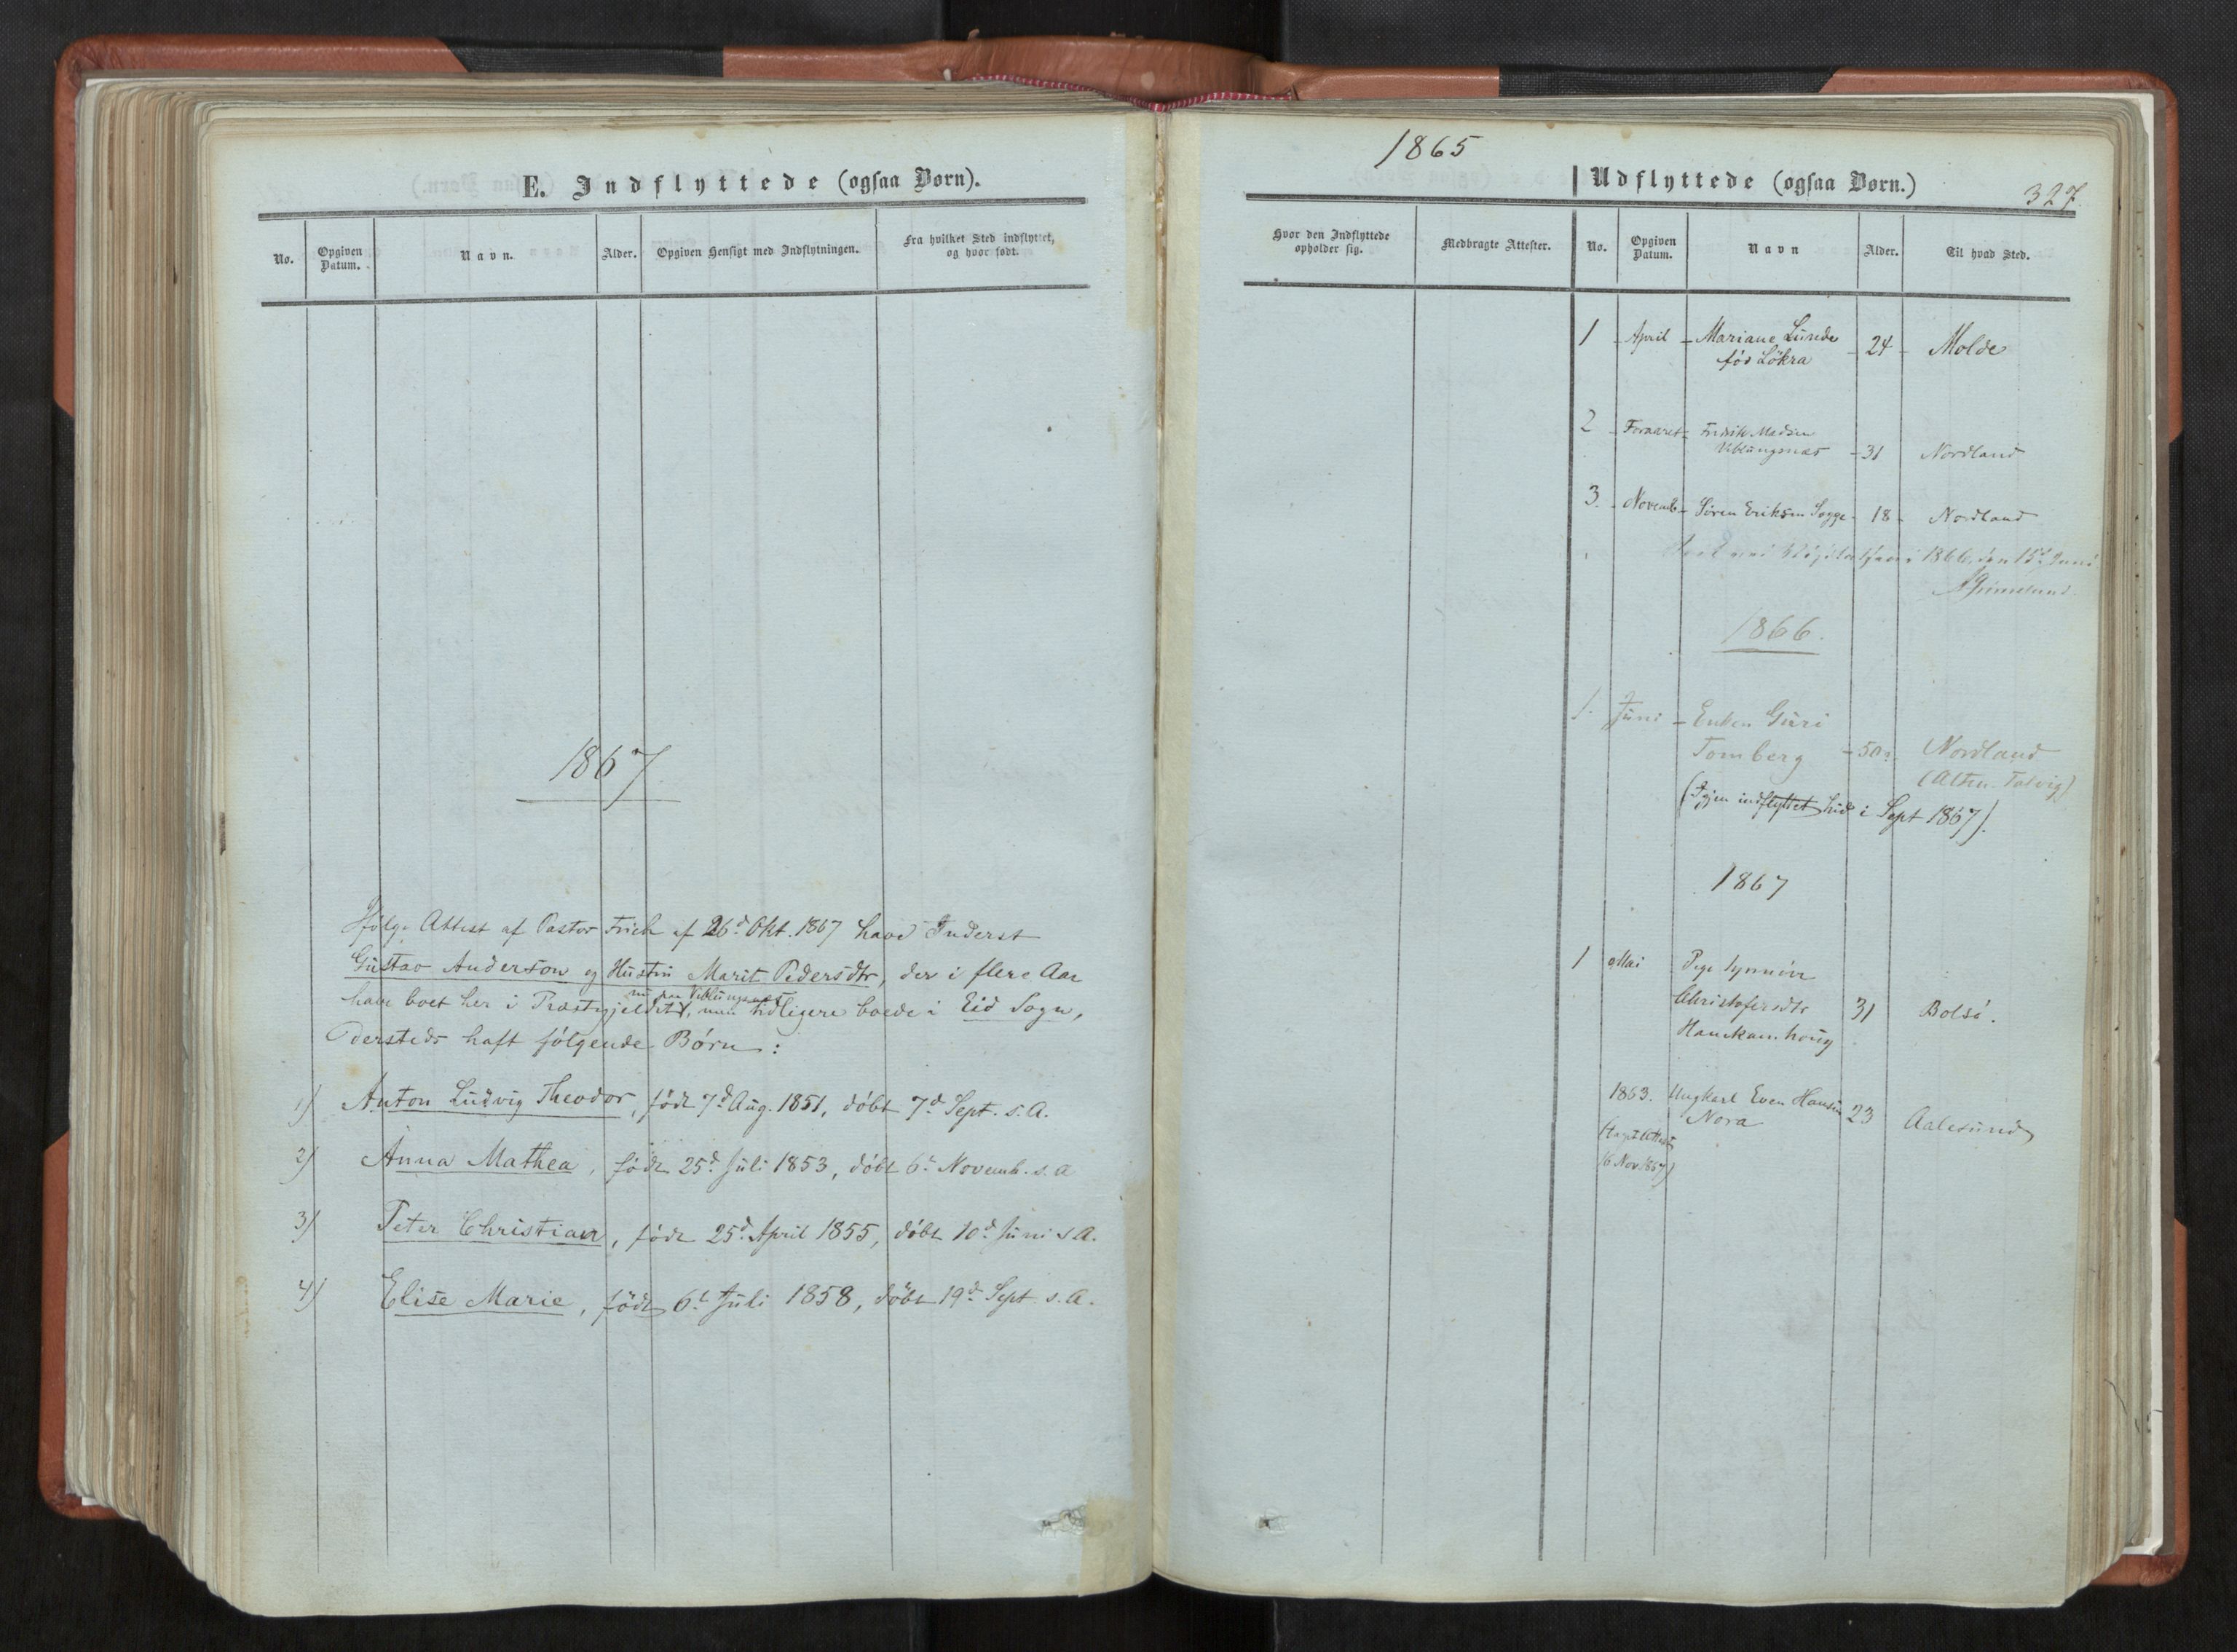 E. Indflyttede (ogsaa Børn).
No.
Opgiven Datum.
Navn.
Alder.
Opgiven Hensigt med Indflytningen.
Fra hvilket Sted indflyttet, og hvor født.
1867.
Ifølge Attest af Pastor Frich af 26d Okt. 1867 have Inderst
Gustav Anderson og Hustru Marit Pedersdtr, der i flere Aar
nu paa Veblungsnæs
have boet her i Præstegjeldet, men tidligere boede i Eid Sogn,
dersteds haft følgende Børn:
1) Anton Ludvig Theodor, født 7d Aug. 1851, døbt 7d Sept. s.A.
2) Anna Mathea, født 25d Juli 1853, døbt 6t Novemb. s.a
3) Peter Christian, født 25d April 1855, døbt 10d Juni s A.
4) Elise Marie, født 6t Juli 1858, døbt 19d Sept s.A.
1865
Udflyttede (ogsaa Børn.)
327
Hvor den Indflyttede opholder sig.
Medbragte Attester.
No.
Opgiven Datum.
Navn
Alder.
Til hvad Sted.
1 - April - Mariane Lunde - 24 - Molde
fød Løkra
2 - Foraaret - Fredrik Madsen
Veblungsnæs - 31 Nordland
3. - Novemb - Søren Eriksen Sogge - 18 - Nordland
1866, den 15d Juni
1866.
1. Juni - Enken Guri
Tomberg - 50 Nordland
(Alten. Talvig)
(Igjen indflyttet hid i Sept 1867).
1867
1 Mai Pige Synnöve
Christofersdtr 31 Bolsö.
Hanekamhoug
1863. Ungkarl Even Hansen 23 Aalesund
Nora
(taget Attest
16 Nov. 1867)